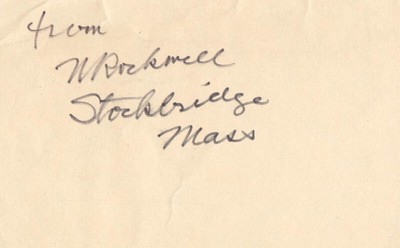 from
N Rockwell
Stockbridge
Mass